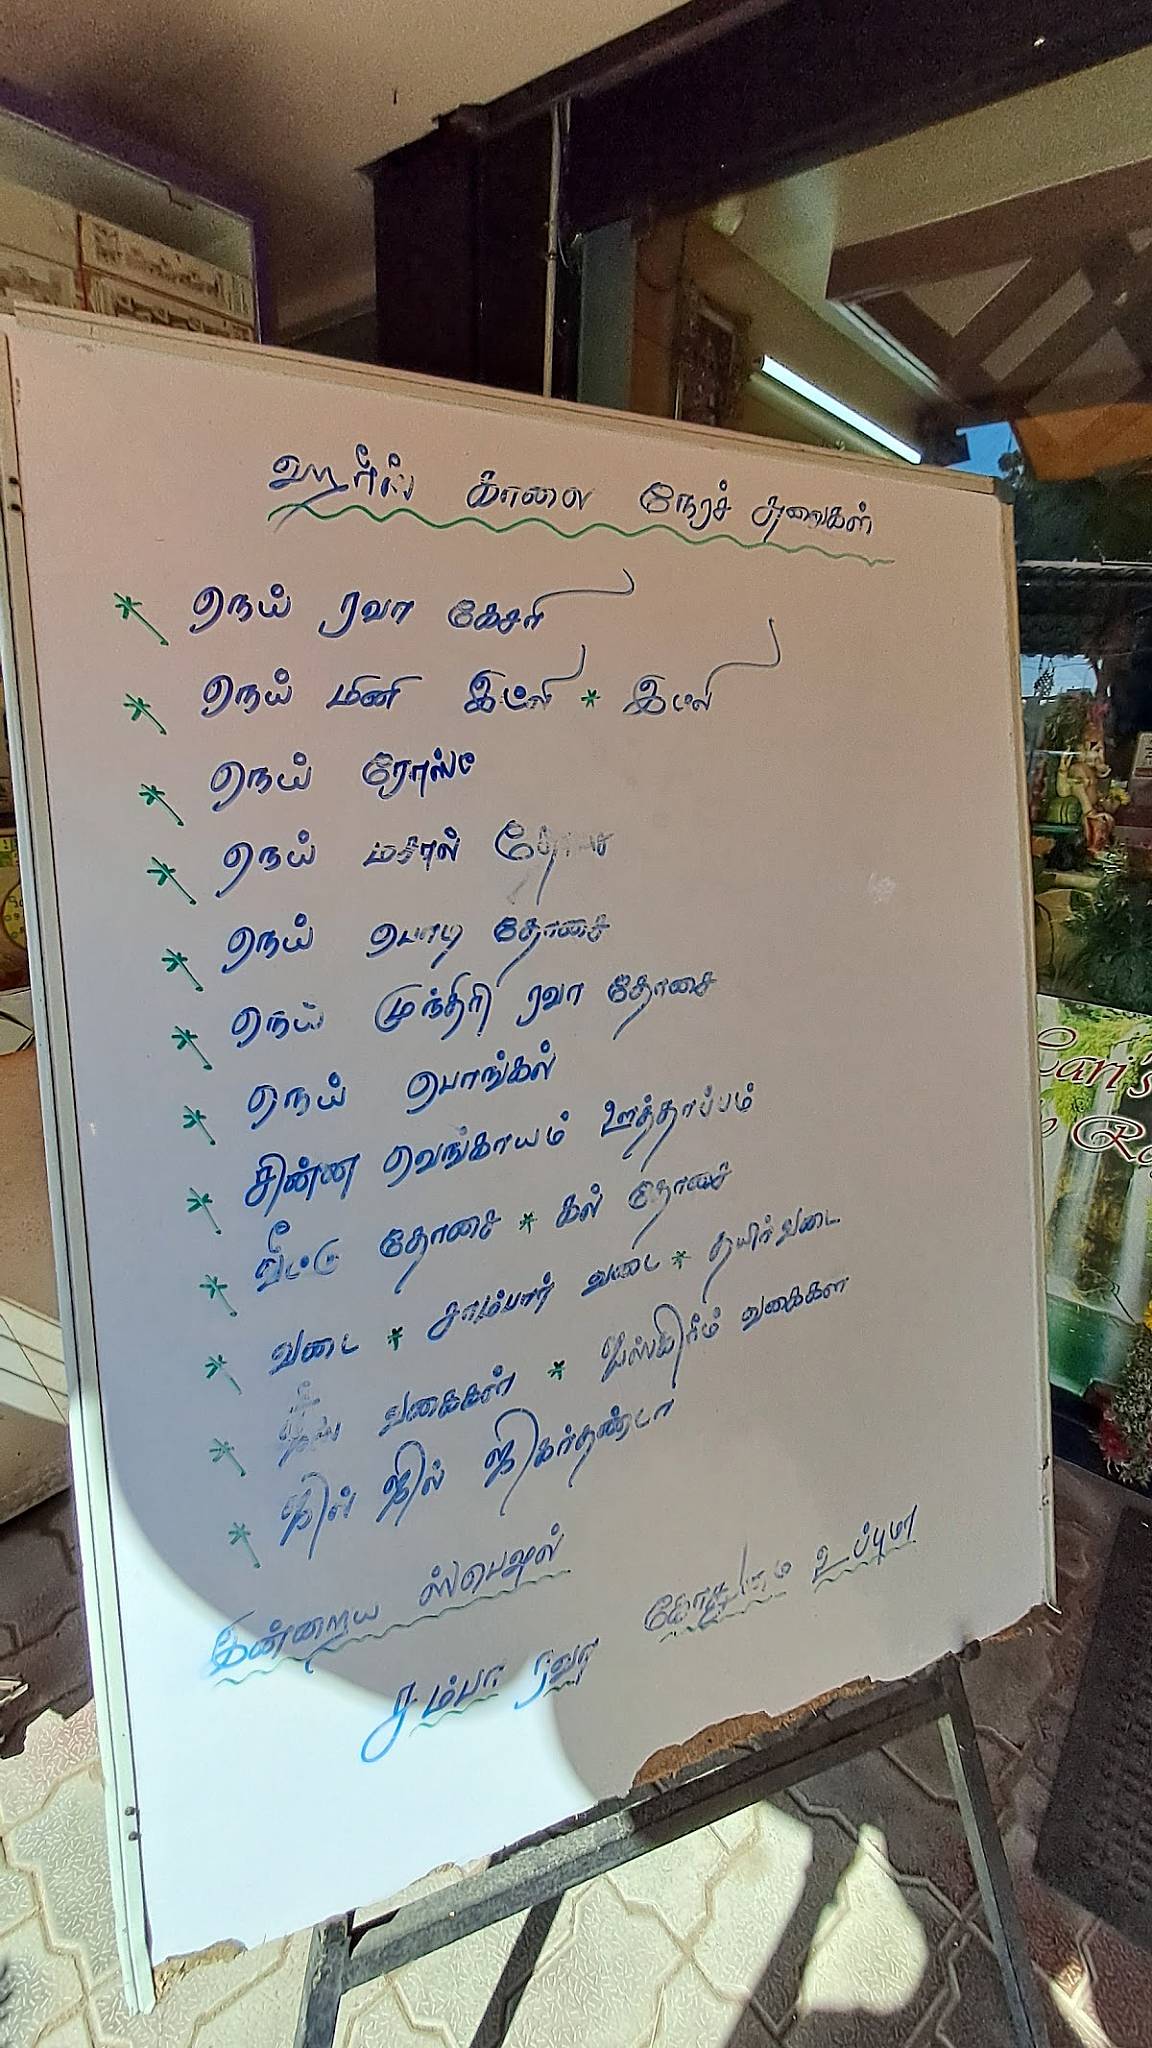 ஹரீஸ் காலை நேரச் சுவைகள்
* நெய் ரவா கேசரி
* நெய் மினி இட்லி * இட்லி
* நெய் ரோஸ்ட்
* நெய் மசால் தோசை
* நெய் பொடி தோசை
* நெய் முந்திரி ரவா தோசை
* நெய் பொங்கல்
* சின்ன வெங்காயம் ஊத்தாப்பம்
* வீட்டு தோசை * கல் தோசை
* வடை * சாம்பார் வடை * தயிர் வடை
* வகைகள் * ஐஸ்கிரீம் வகைகள்
* ஜில் ஜில் ஜிகர்தண்டா
இன்றைய ஸ்பெஷல்
சம்பா ரவா கோதுமை உப்புமா